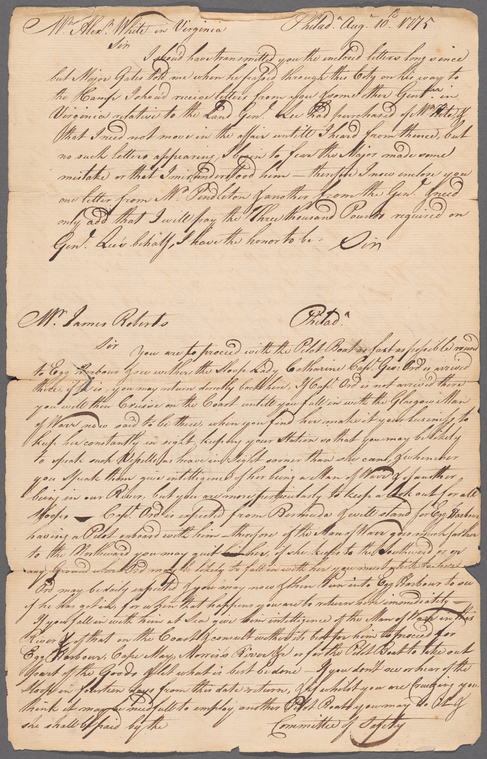 Mr. Alexr. White in Virginia Philada. Augt. 10th. 1775
Sir
I shoud have transmitted you the inclosed letters long since
but Major Gates told me when he passed through this City on his way to
the Camp I shoud receive letters from you & some other Gentn. in
Virginia relative to the Land Genl. Lee had purchased of Mr.
that I need not move in the affair untill I heard from thence, but
no such letters appearing, I begin to fear the Major made some
mistake or that I misunderstood him — therefore I now inclose you
one letter from Mr. Pendleton & another from the Genl. I need
only add that I will pay the Three thousand Pounds required on
Genl. Lees behalf, I have the honor to be. Sir
Mr. James Roberts Philada.
Sir
You are to proceed with the Pilot Boat as fast as possible round
to Egg Harbour & see wether the Sloop Lady Catharine Capt. Geo: Ord is arrived
there, if he is you may return directly back here. If Capt. Ord is not arrived there
you will then Cruise on the Coast untill you fall in with the Glasgow Man
of Warr now said to be there, when you find her make it your business to
keep her constantly in sight, keep by your Station so that you may be likely
to speak such Vessells as have in sight sooner than she can, & whenever
you speak them give intelligence of her being a Man of Warr & another
being in our River, but you are more particularly to keep a look out for all
Sloops — Capt. Ord is expected from Bermuda & will stand for Egg Harbour
having a Pilot onboard with him — therefore if the Man of Warr goes much further
to the Northward you may quit her, if she keeps to the Southward or on
any Ground where Ord may be likely to fall in with her you must stick to her
Ord may be daily expected & you may now & then run into Egg Harbour to see
if he has got in for when that happens you are to return here immediately —
If you fall in with him at Sea give him intelligence of the Man of Warr in this
River & of that on the Coast & consult with him its best for him to proceed for
Egg Harbour, Cape May, Morris River &c or for the Pilot Boat to take out
part of the Goods & let what is best be done — If you dont see or hear of the
Sloop in fourteen days from this date return, & if whilst you are Cruizing you
think it may be needfull to employ another Pilot Boat you may do it &
she shall be paid by the Committee of Safety